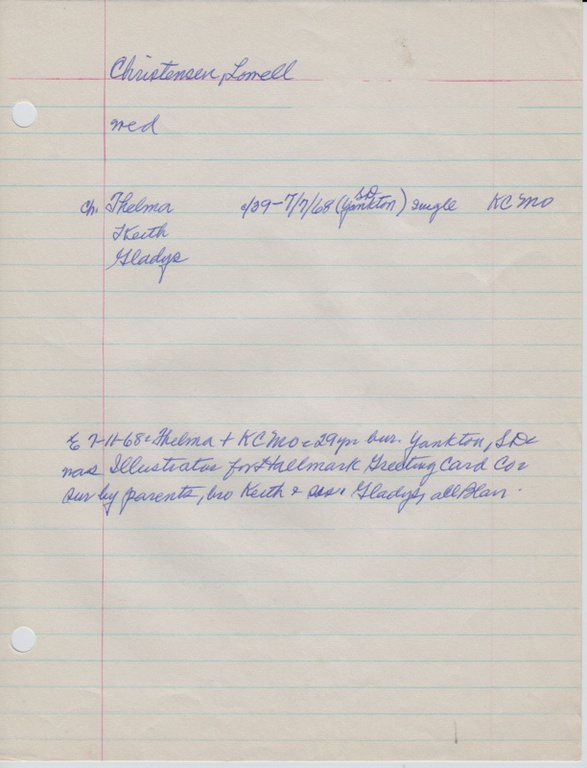 Christensen, Lowell
med
ch. Thelma c/39-7/7/68 (Yankton SD) single KC Mo
Keith
Gladys
E 7-11-68: Thelma + KC Mo c 29 yr bur. Yankton, SD
was Illustrator for Hallmark Greeting Card Co
sur by parents, bro Keith & sis Gladys, all Blair.